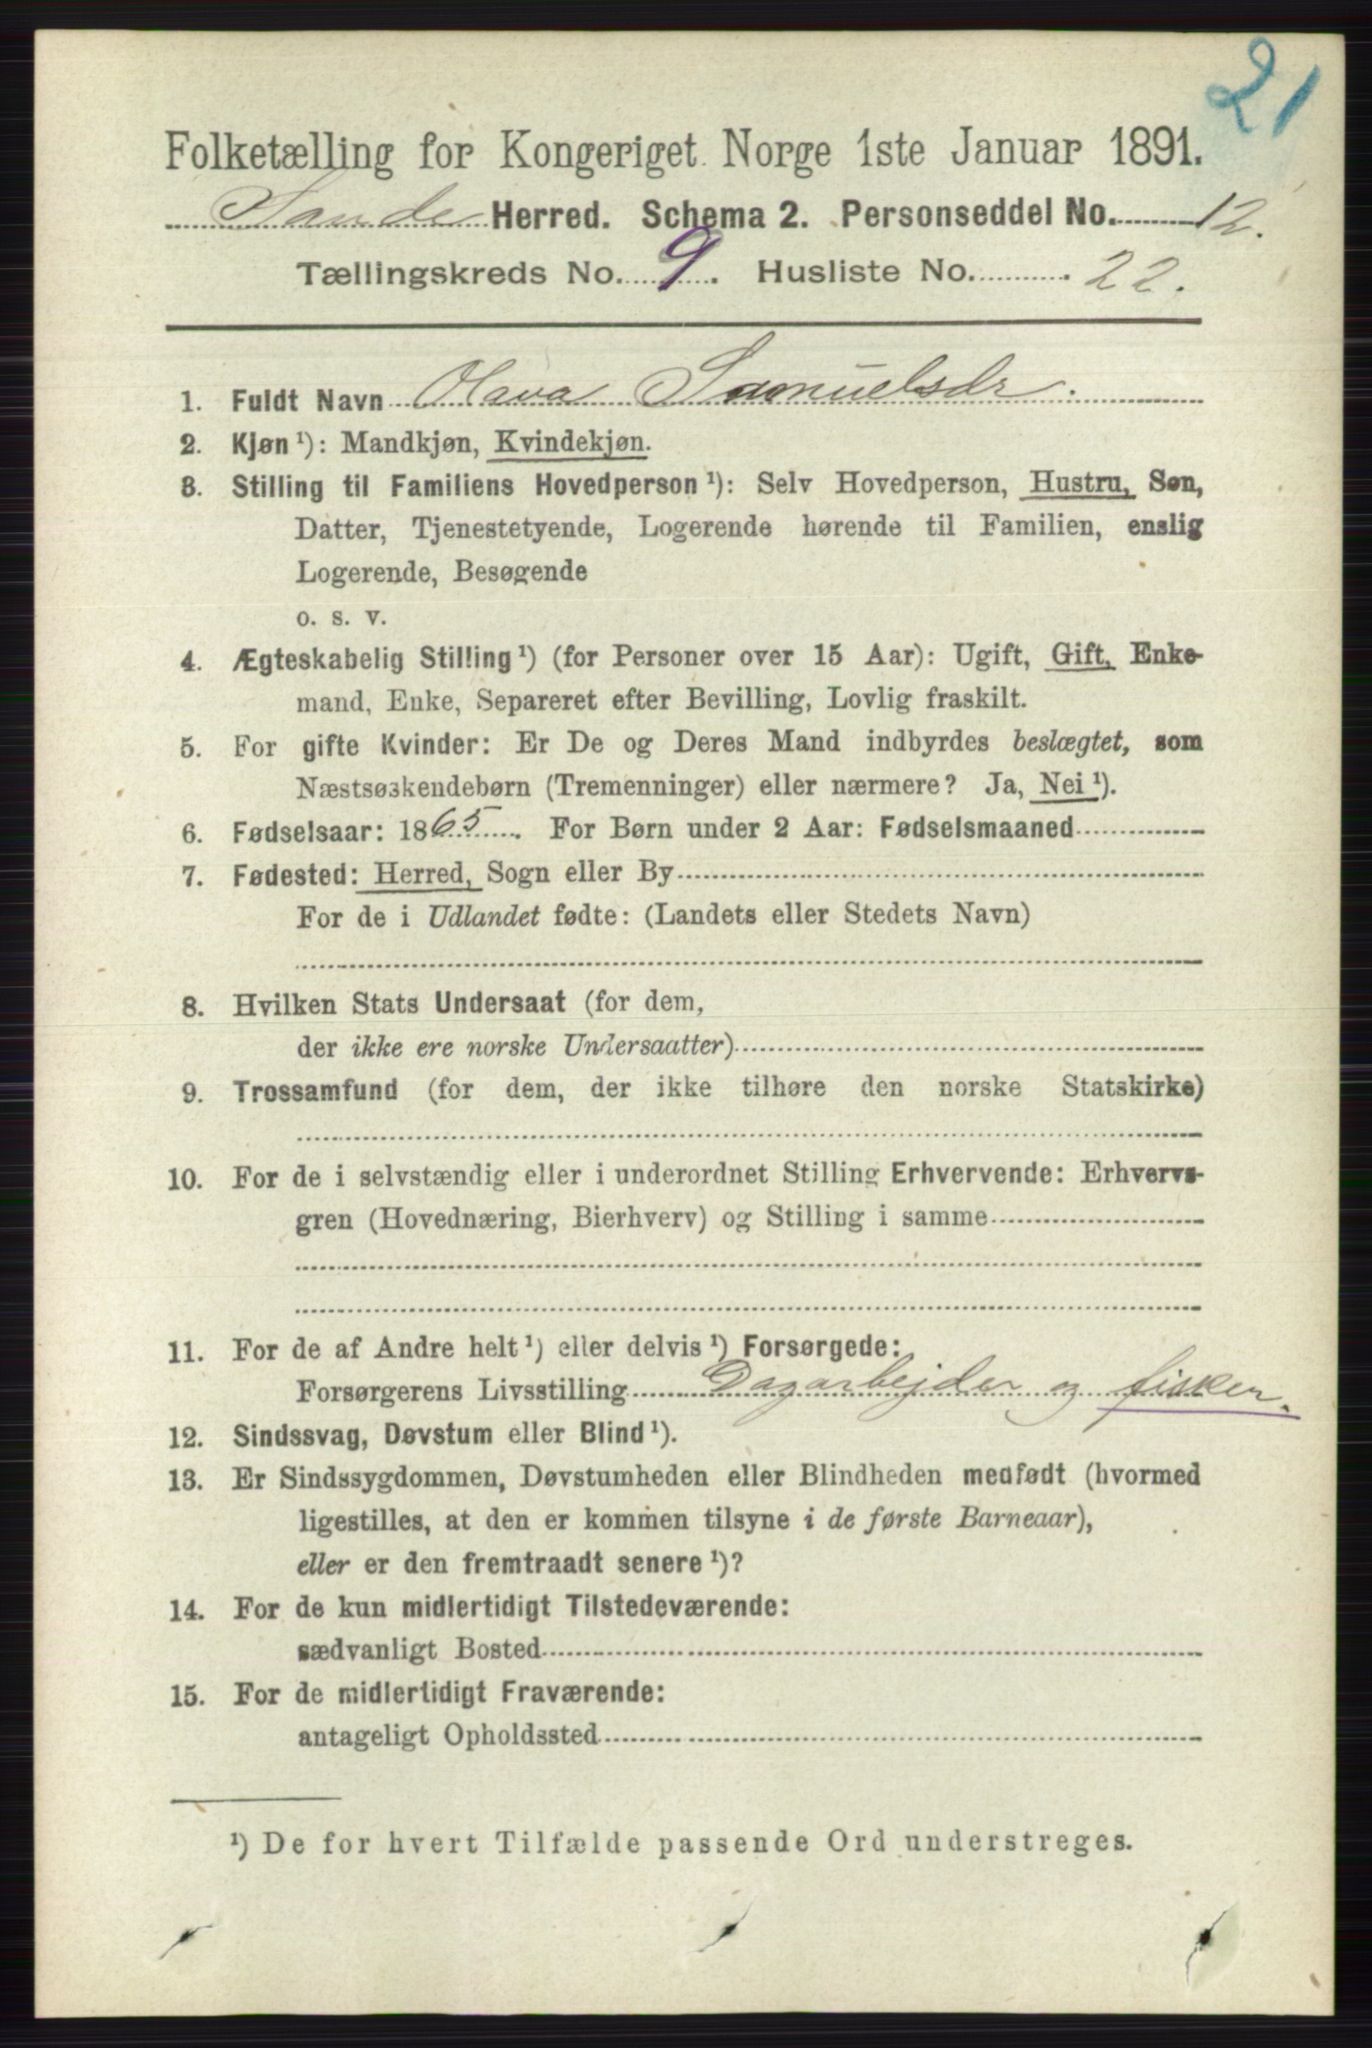 21
Folketælling for Kongeriget Norge 1ste Januar 1891.
Sande Herred. Schema 2. Personseddel No. 12.
Tællingskreds No. 9. Husliste No. 22.
1. Fuldt Navn Olava Samuelsdr.
2. Kjøn ¹): Mandkjøn, Kvindekjøn.
3. Stilling til Familiens Hovedperson ¹): Selv Hovedperson, Hustru, Søn,
Datter, Tjenestetyende, Logerende hørende til Familien, enslig
Logerende, Besøgende
o. s. v.
4. Ægteskabelig Stilling ¹) (for Personer over 15 Aar): Ugift, Gift, Enke-
mand, Enke, Separeret efter Bevilling, Lovlig fraskilt.
5. For gifte Kvinder: Er De og Deres Mand indbyrdes beslægtet, som
Næstsøskendebørn (Tremenninger) eller nærmere? Ja, Nei ¹).
6. Fødselsaar: 1865. For Børn under 2 Aar: Fødselsmaaned
7. Fødested: Herred, Sogn eller By
For de i Udlandet fødte: (Landets eller Stedets Navn)
8. Hvilken Stats Undersaat (for dem,
der ikke ere norske Undersaatter)
9. Trossamfund (for dem, der ikke tilhøre den norske Statskirke)
10. For de i selvstændig eller i underordnet Stilling Erhvervende: Erhvervs-
gren (Hovednæring, Bierhverv) og Stilling i samme
11. For de af Andre helt ¹) eller delvis ¹) Forsørgede:
Forsørgerens Livsstilling Dagarbejder og fisker.
12. Sindssvag, Døvstum eller Blind ¹).
13. Er Sindssygdommen, Døvstumheden eller Blindheden medfødt (hvormed
ligestilles, at den er kommen tilsyne i de første Barneaar),
eller er den fremtraadt senere ¹)?
14. For de kun midlertidigt Tilstedeværende:
sædvanligt Bosted
15. For de midlertidigt Fraværende:
antageligt Opholdssted
¹) De for hvert Tilfælde passende Ord understreges.